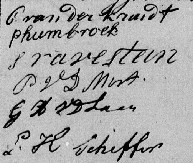 P van der Kruidt
Phumbroek
Gravestein
P V D Mort.
G H V D Laan
L. K Scheffer